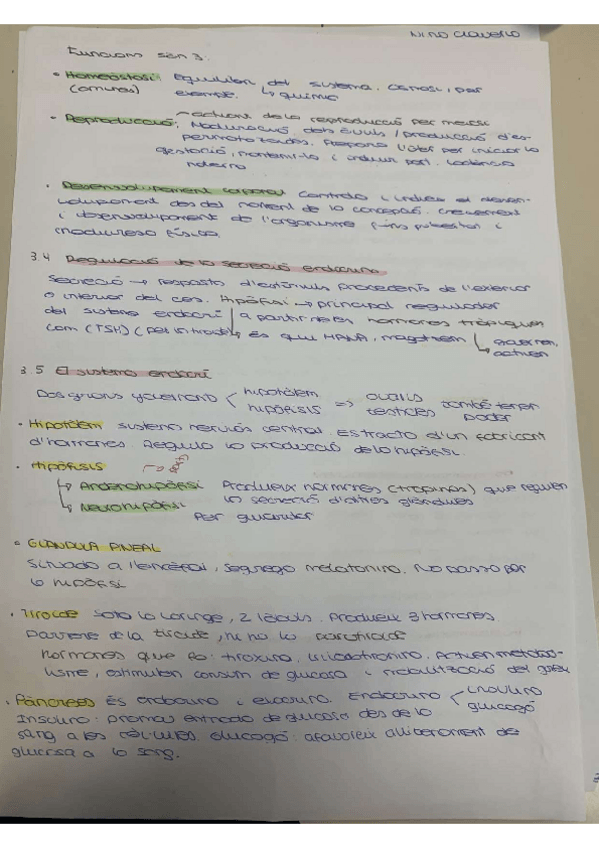 NINO CLAVERO
Funcions són 3.
• Homeòstasi: Equilibri del sistema. Canosi, per
(comunes) exemple. ↳ químic
• Reproducció: actuant de la reproducció per mecsi
Maduració dels òvuls / producció d'es-
permatozoides. Prepara l'úter per iniciar la
gestació, mantenir-la i induir part. Lactància
materna
• Desenvolupament corporal Controla i indueix el desen-
volupament des del moment de la concepció. Creixement
i desenvolupament de l'organisme fins pubertat i
maduresa física.
3.4 Regulació de la secreció endocrina
Secreció → resposta d'estímuls procedents de l'exterior
o interior del cos. Hipòfisi → principal regulador
del sistema endocrí a partir de les hormones tròpiques
com (TSH) ( per la tiroide) ↳ és que
↳ activen
3.5 El sistema endocrí
Dos grans governants < hipotàlem hipòfisis => ovaris testicles també tenen poder
• Hipotàlem sistema nerviós central. Es tracta d'un fabricant
d'hormones. Regula la producció de la hipòfisi.
• Hipòfisis
↳ Adenohipòfisi Produeix hormones (tropines) que regulen
↳ Neurohipòfisi la secreció d'altres glàndules
Per glucosa
• GLÀNDULA PINEAL
Situada a l'encèfal, segrega melatonina. No passa per
la hipòfisi
• Tiroide Sota la laringe, 2 lòbuls. Produeix 3 hormones.
Darrere de la tiroide, hi ha la paratiroide
Hormones que fa: tiroxina, triiodotironina. Activen metabo-
lisme, estimulen consum de glucosa i mobilització del greix
• Pàncrees És endocrino i exocrino. Endocrino < insulina glucagó
Insulina: promou entrada de glucosa des de la
sang a les cèl·lules. Glucagó: afavoreix alliberament de
glucosa a la sang.